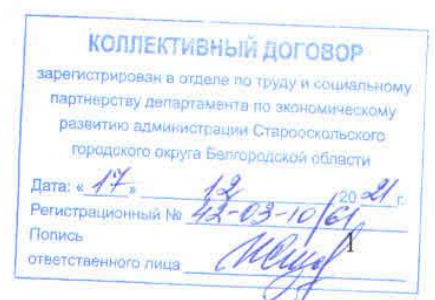 КОЛЛЕКТИВНЫЙ ДОГОВОР
зарегистрирован в отделе по труду и социальному
партнерству департамента по экономическому
развитию администрации Старооскольского
городского округа Белгородской области
Дата: « 17 » 12 20 21 г.
Регистрационный № 42-03-10/61
Попись 1
ответственного лица